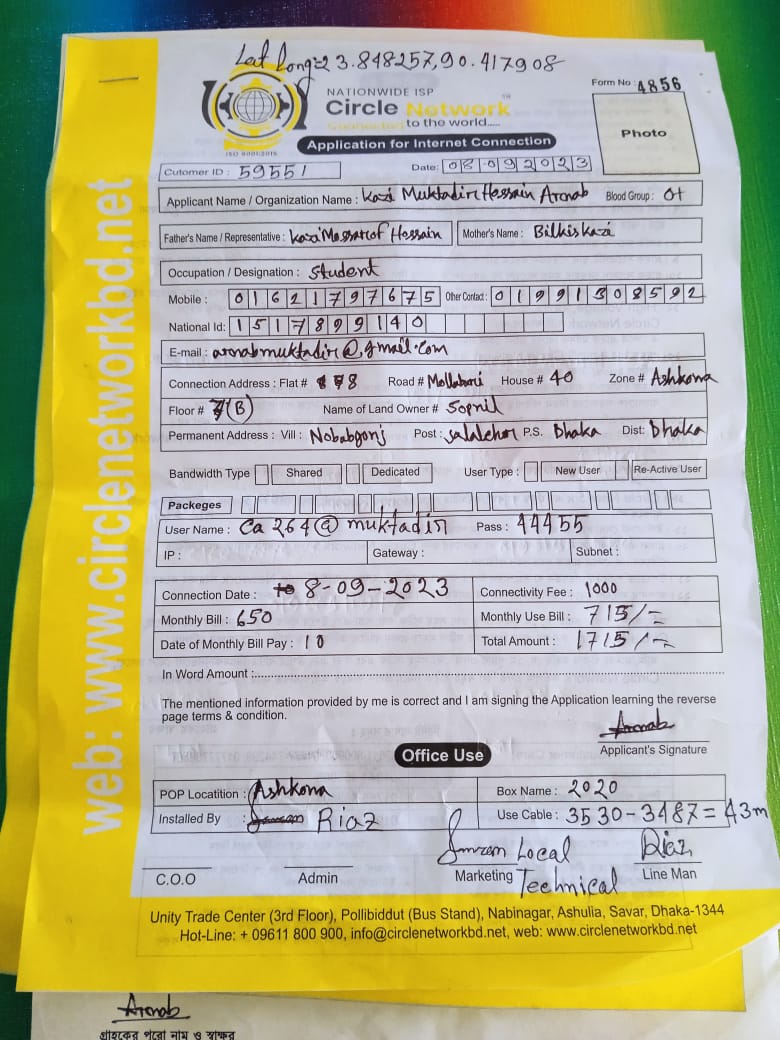 Lat Long = 23.848257,90.417908
NATIONWIDE ISP
Circle Network
Connected to the world.....
ISO 9001:2015
Form No : 4856
Photo
Application for Internet Connection
Cutomer ID : 59551
Date: 08 09 2023
Applicant Name / Organization Name : Kazi Muktadir Hossain Aronab Blood Group : O+
Father's Name / Representative : Kazi Mossarof Hossain Mother's Name : Bilkis kazi
Occupation / Designation : Student
Mobile : 01621797675 Other Contact : 01991308592
National Id: 1517899140
E-mail : aronabmuktadir@.gmail.com
Connection Address : Flat # 8 Road # Mollabari House # 40 Zone # Ashkona
Floor # 7(B) Name of Land Owner # Sopnil
Permanent Address : Vill : Nobabgonj Post : Jalalchor P.S. Dhaka Dist: Dhaka
Bandwidth Type Shared Dedicated User Type : New User Re-Active User
Packeges
User Name : Ca264@muktadir Pass : 44455
IP : Gateway : Subnet :
Connection Date : 8-09-2023 Connectivity Fee : 1000
Monthly Bill : 650 Monthly Use Bill : 715/=
Date of Monthly Bill Pay : 10 Total Amount : 1715/=
In Word Amount :
The mentioned information provided by me is correct and I am signing the Application learning the reverse
page terms & condition.
Aronab
Applicant's Signature
Office Use
POP Locatition : Ashkona Box Name : 2020
Installed By : Riaz Use Cable : 3530-3487=43m
Local Riaz
C.O.O Admin Marketing Technical Line Man
Unity Trade Center (3rd Floor), Pollibiddut (Bus Stand), Nabinagar, Ashulia, Savar, Dhaka-1344
Hot-Line: + 09611 800 900, info@circlenetworkbd.net, web: www.circlenetworkbd.net
web: www.circlenetworkbd.net
Aronab
গ্রাহকের পুরো নাম ও স্বাক্ষর